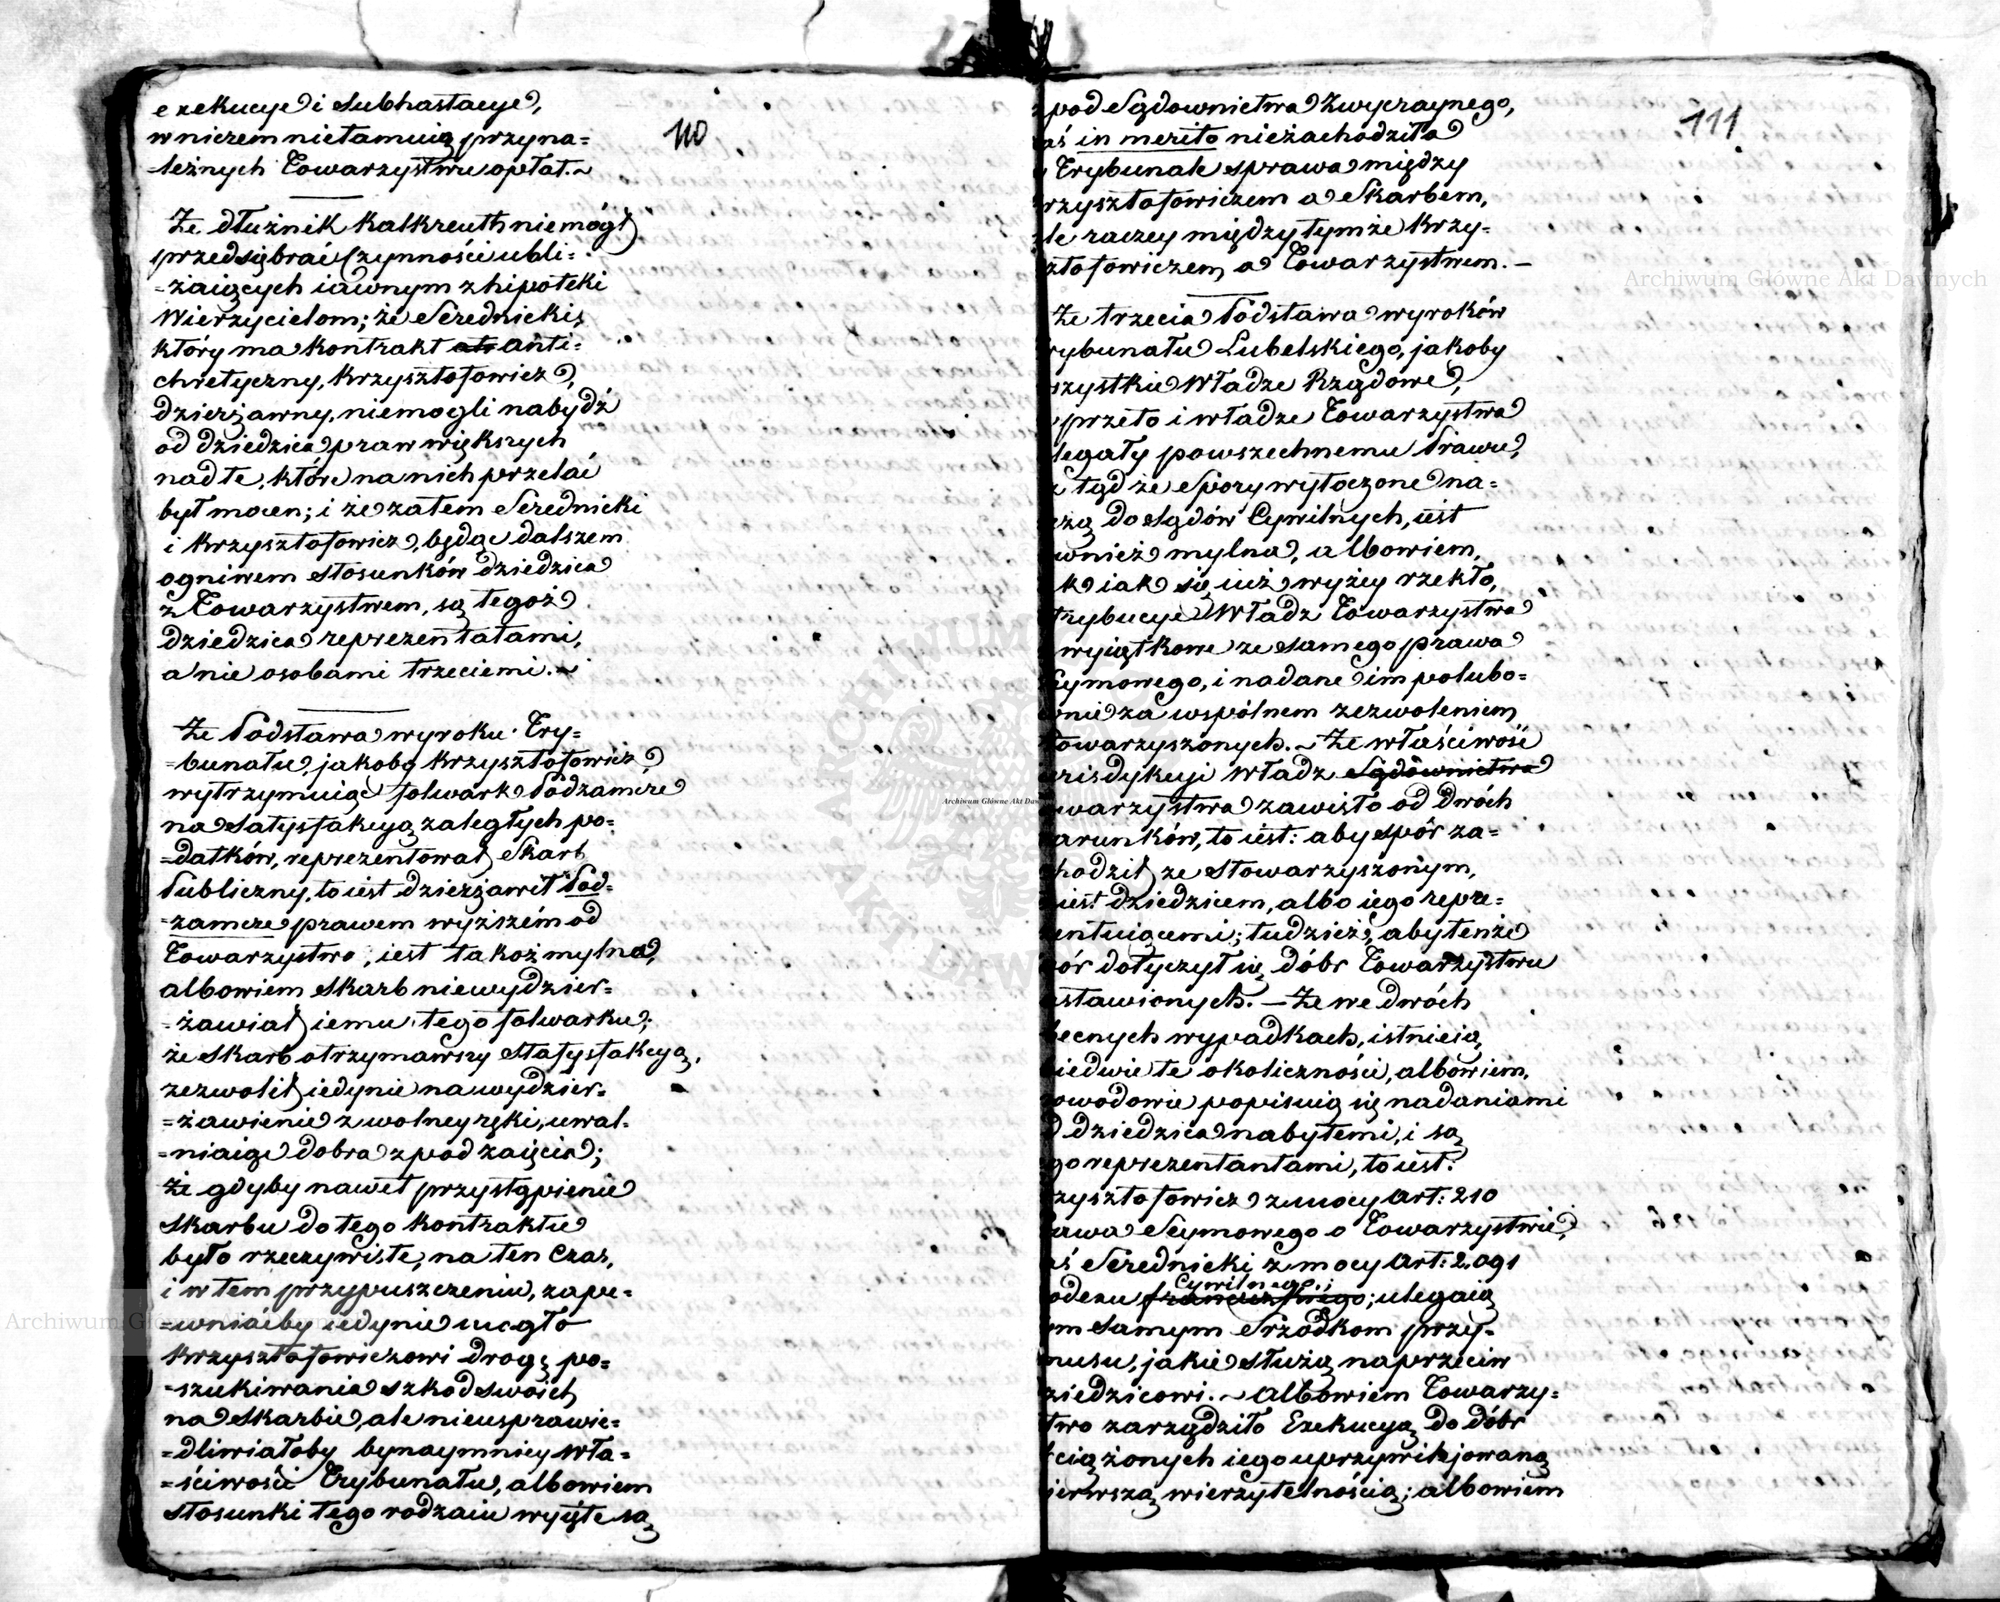 110
exekucye i Subhastacye,
w niczem nietamuią przyna=
=leżnych Towarzystwu opłat.~
Że dłużnik Kalkreuth niemógł
przedsiębrać czynności ubli=
=żaiących iawnym z hipoteki
Wierzycielom; że Serednicki,
który ma kontrakt anti=
chretyczny, Krzysztofowicz,
dzierżawny, niemogli nabydź
od dziedzica praw większych
nad te, które na nich przelać
był mocen; i że zatem Serednicki
i Krzysztofowicz, będąc dalszem
ogniwem stosunków dziedzica
z Towarzystwem, są tegoż
dziedzica reprezentatami,
a nie osobami trzeciemi.~
Że Podstawa wyroku Try=
=bunału, jakoby Krzysztofowicz,
wytrzymuiąc folwark Podzamcze
na Satysfakcyą zaległych po=
=datków, reprezentował Skarb
Publiczny, to iest dzierżawił Pod=
=zamcze prawem wyższém od
Towarzystwa, iest takoż mylna,
albowiem Skarb niewydzier=
=żawiał iemu tego folwarku;
że Skarb otrzymawszy Statysfakcyą,
zezwolił iedynie na wydzier=
=żawienie z wolney ręki, uwal=
=niaiąc dobra z pod zaięcia;
że gdyby nawet przystąpienie
Skarbu do tego kontraktu
było rzeczywiste, na ten czas,
i w tem przypuszczeniu, zape=
=wniaćby iedynie mogło
Krzysztofowiczowi drogę po=
=szukiwania szkod swoich
na Skarbie, ale nieusprawie=
=dliwiałoby bynaymniey wła=
=ściwości Trybunału, albowiem
stosunki tego rodzaiu wyięte są
111
z pod Sądownictwa Zwyczaynego,
aś in merito niezachodziła
Trybunale sprawa między
rzysztofowiczem a Skarbem,
le raczey między tymże Krzy=
sztofowiczem, a Towarzystwem. –
Że trzecia Podstawa wyroków
rybunału Lubelskiego, jakoby
szystkie Władze Rządowe,
przeto i władze Towarzystwa
legały powszechnemu Prawu,
tąd że Spory wytoczone na=
eżą do Sądów Cywilnych, iest
wnież mylna, albowiem,
k iak się iuż wyżey rzekło,
trybucye Władz Towarzystwa
wyiątkowe ze samego prawa
eymowego, i nadane im polubo=
wnie za wspólnem zezwoleniem
towarzyszonych. ~ Że właściwość
urisdykcyi Władz Sądownictwa
owarzystwa zawisło od dwóch
arunków, to iest: aby spór za=
hodził ze Stowarzyszonym,
iest dziedzicem, albo iego repre=
zentuiącemi; tudzież, aby tenże
ór dotyczył się dóbr Towarzystwu
astawionych. – Że we dwóch
becnych wypadkach, istnieią
iedwie te okoliczności, albowiem,
owodowie popisuią się nadaniami
d dziedzica nabytemi, i są
go reprezentantami, to iest:
zysztofowicz z mocy Art: 210
awa Seymowego o Towarzystwie,
aś Serednicki z mocy Art: 2091
Cywilnego;
odexu francuzkiego; ulegaią
em samym Srzodkom przy=
musu, jakie służą naprzeciw
ziedzicowi. ~ albowiem Towarzy=
stwo zarządziło Exekucyą do dóbr
bciążonych iego uprzywilejowaną
ierwszą wierzytelnością; albowiem